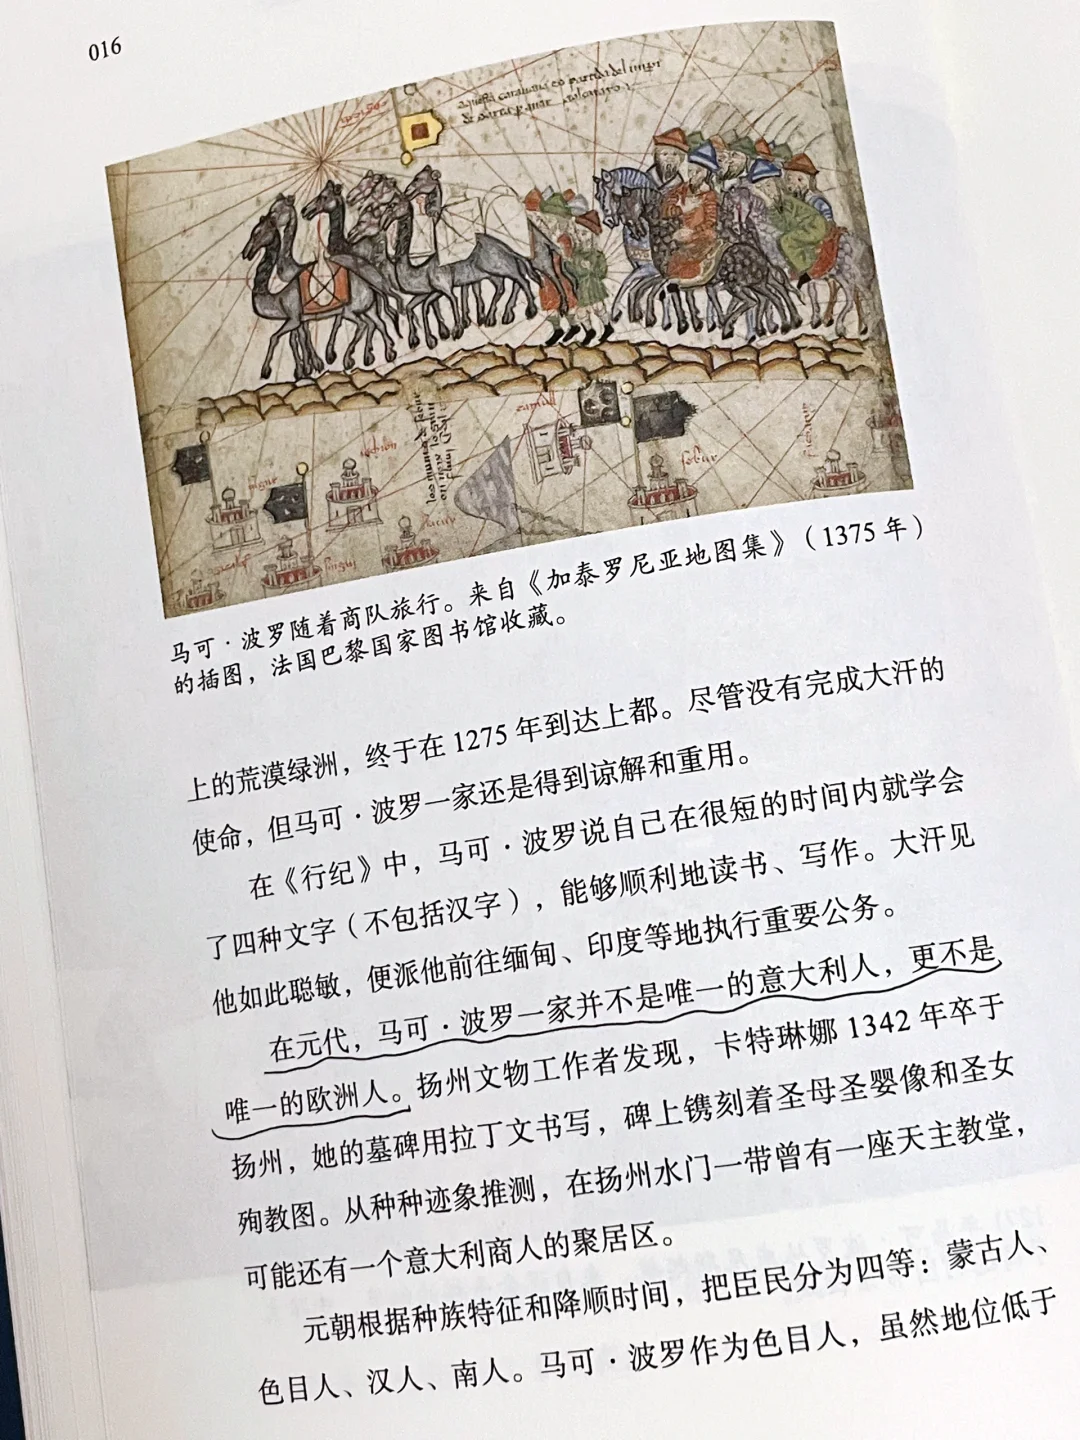 016
马可·波罗随着商队旅行。来自《加泰罗尼亚地图集》（1375年）
的插图，法国巴黎国家图书馆收藏。
上的荒漠绿洲，终于在1275年到达上都。尽管没有完成大汗的
使命，但马可·波罗一家还是得到谅解和重用。
在《行纪》中，马可·波罗说自己在很短的时间内就学会
了四种文字（不包括汉字），能够顺利地读书、写作。大汗见
他如此聪敏，便派他前往缅甸、印度等地执行重要公务。
在元代，马可·波罗一家并不是唯一的意大利人，更不是
唯一的欧洲人。扬州文物工作者发现，卡特琳娜1342年卒于
扬州，她的墓碑用拉丁文书写，碑上镌刻着圣母圣婴像和圣女
殉教图。从种种迹象推测，在扬州水门一带曾有一座天主教堂，
可能还有一个意大利商人的聚居区。
元朝根据种族特征和降顺时间，把臣民分为四等：蒙古人、
色目人、汉人、南人。马可·波罗作为色目人，虽然地位低于